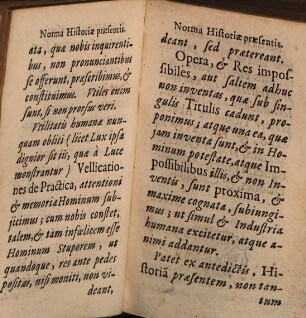 Norma Historiæ præsentis.
ata, quæ nobis inquirenti-
bus, non pronunciantibus
se offerunt, præscribimus, &
constituimus. Vtiles enim
sunt, si non prorsus veri.
Vtilitatis humanæ nun-
quam obliti (licet Lux ipsa
dignior sit iis, quæ à Luce
monstrantur) Vellicatio-
nes de Practica, attentioni
& memoriæ Hominum sub-
jicimus; cum nobis constet,
talem, & tam infælicem esse
Hominum Stuporem, ut
quandoque, res ante pedes
positas, nisi moniti, non vi-
deant,
Norma Historiæ præsentis.
deant, sed prætereant.
Opera, & Res impos-
sibiles, aut saltem adhuc
non inventas, quæ sub sin-
gulis Titulis cadunt, pro-
ponimus; atque una ea, quæ
jam inventa sunt, & in Ho-
minum potestate, atque Im-
possibilibus illis, & non In-
ventis, sunt proxima, &
maxime cognata, subjungi-
mus; ut simul & Industria
humana excitetur, atque a-
nimi addantur.
Patet ex antedictis, Hi-
storiã præsentem, non tan-
tum